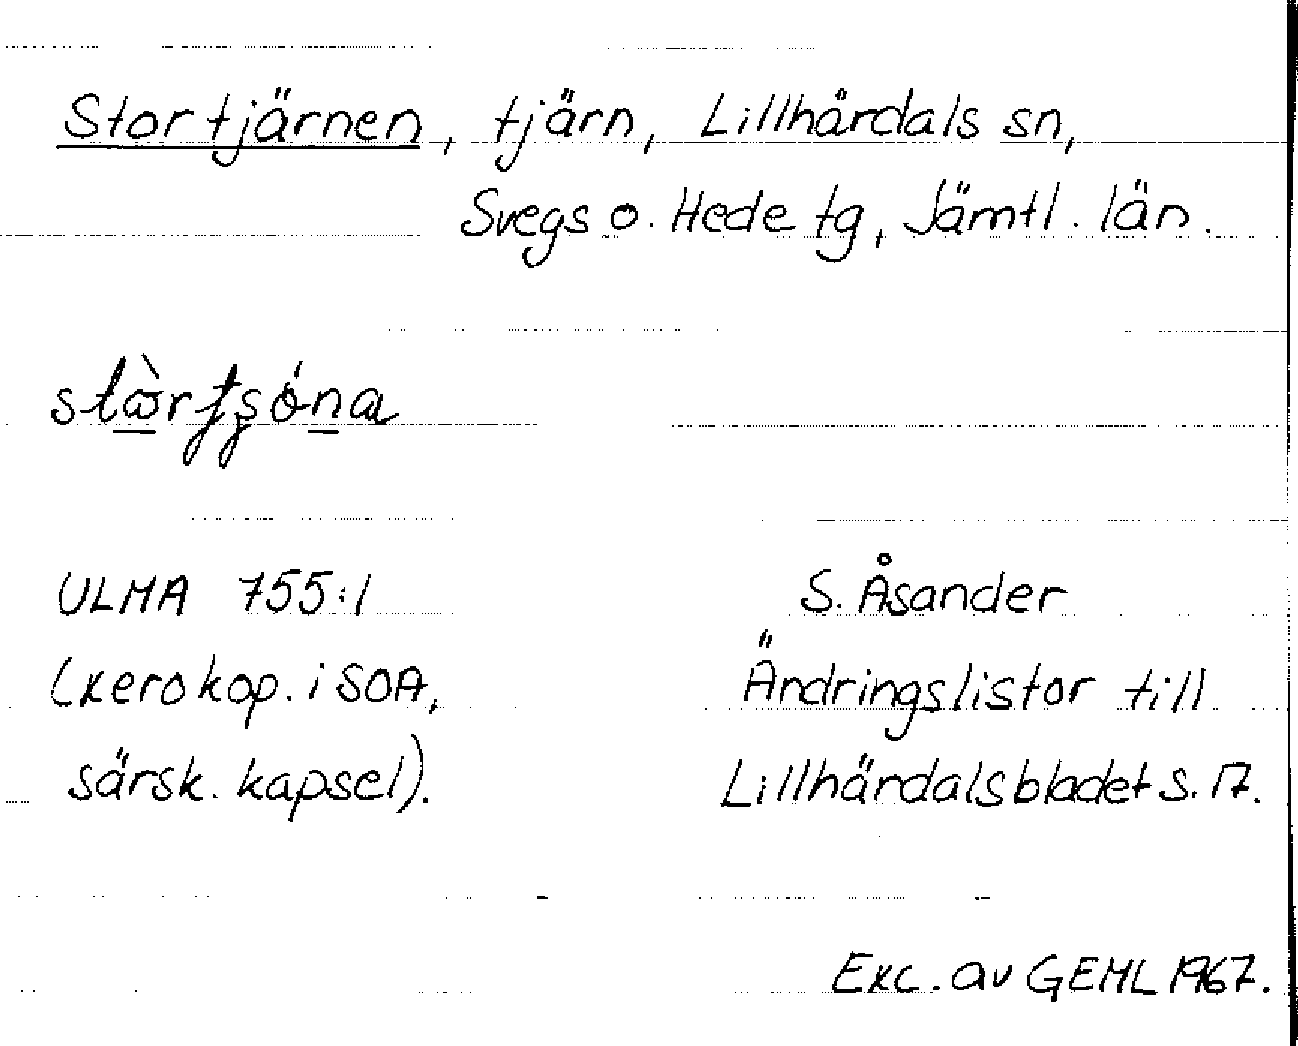 Stortjärnen, tjärn, Lillhärdals sn,
Svegs o. Hede tg, Jämtl. län.
ULMA 755:1
(xerokop. i SOA,
särsk. kapsel).
S. Åsander
Ändringslistor till
Lillhärdalsbladet s. 17.
Exc. av GEML 1967.